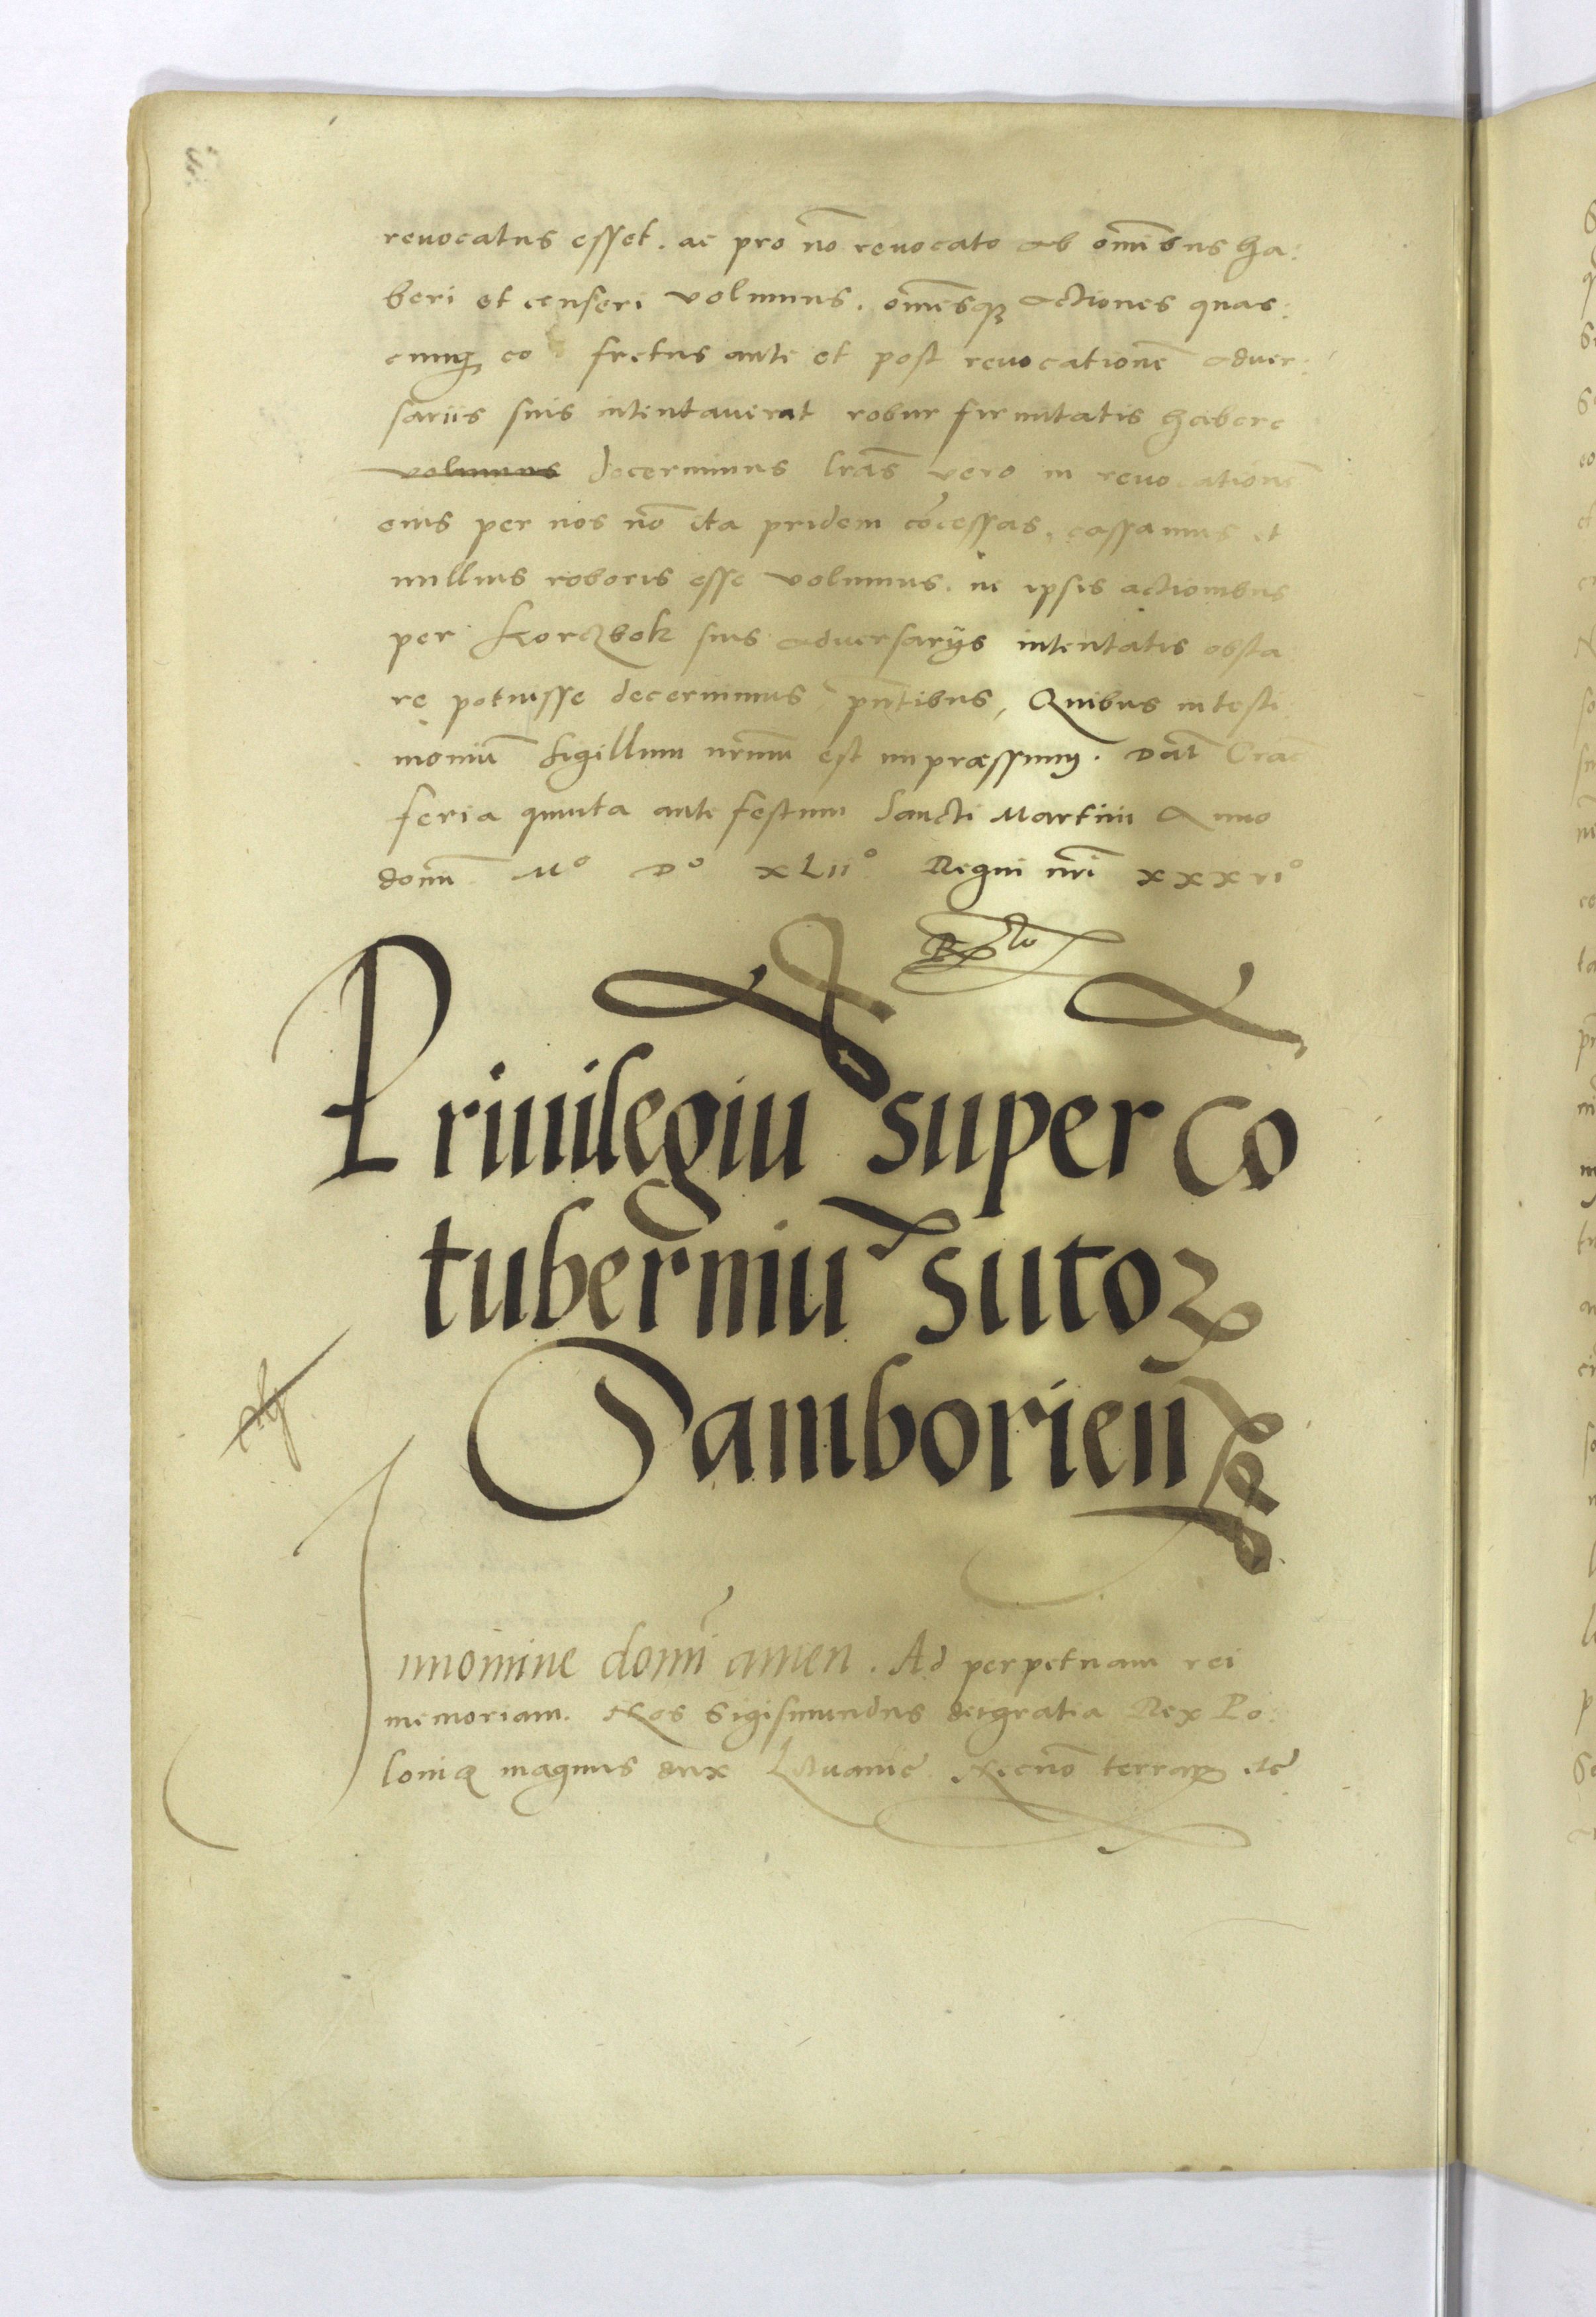 revocatus esset. ac pro nō revocato ab omībus ha:
beri et censeri volumus. omēsqꝫ actiones quas:
cunqꝫ eo fretus ante et post revocationē adver:
sariis suis intentaverat robur firmitatis habere
volumus decernimus lrās vero in revocationē
eius per nos nō ita pridem cōcessas, cassamus et
nullius roboris esse volumus. ni ipsis actionibus
per Korczbok suis adversarÿs intentatis obsta
re potuisse decernimus pn̄tibus, Quibus in testi:
moniū Sigillum nrūm est impræssumꝫ. Dat̄ Crac̄
feria quinta ante festum Sancti Martini Anno
domī M° D° XLII° Regni nrī XXXVI°
Privilegiū super Cō
tuberniū sutoꝝ
Samborien̄
In nomine domī amen. Ad perpetuam rei
memoriam. Nos Sigismundus dei gratia Rex Po:
loniæ magnus dux Lituaniae Necnō terraꝝ etc̄